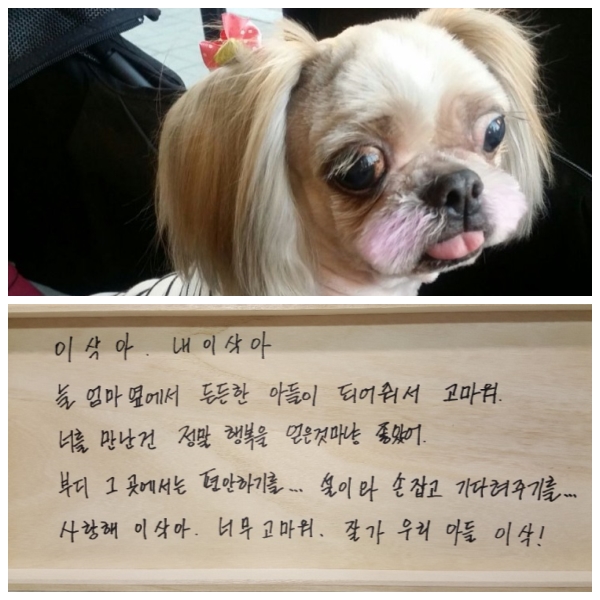 이삭아. 내 이삭아
늘 엄마 옆에서 든든한 아들이 되어줘서 고마워.
너를 만난건 정말 행복을 얻은것마냥 좋았어.
부디 그 곳에서는 편안하기를... 설이와 손잡고 기다려주기를...
사랑해 이삭아. 너무 고마워. 잘가 우리 아들 이삭!